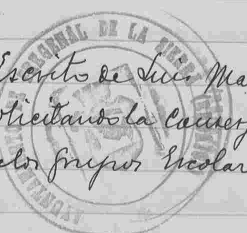 AYUNTAMIENTO DE ARGENAL DE LA SIERRA
Escrito de Luis Ma
olicitando la conserj
de los grupos Escolar